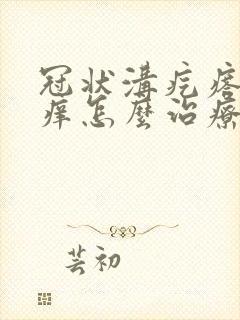 冠状溝疙瘩
痒怎麼治療
芸初